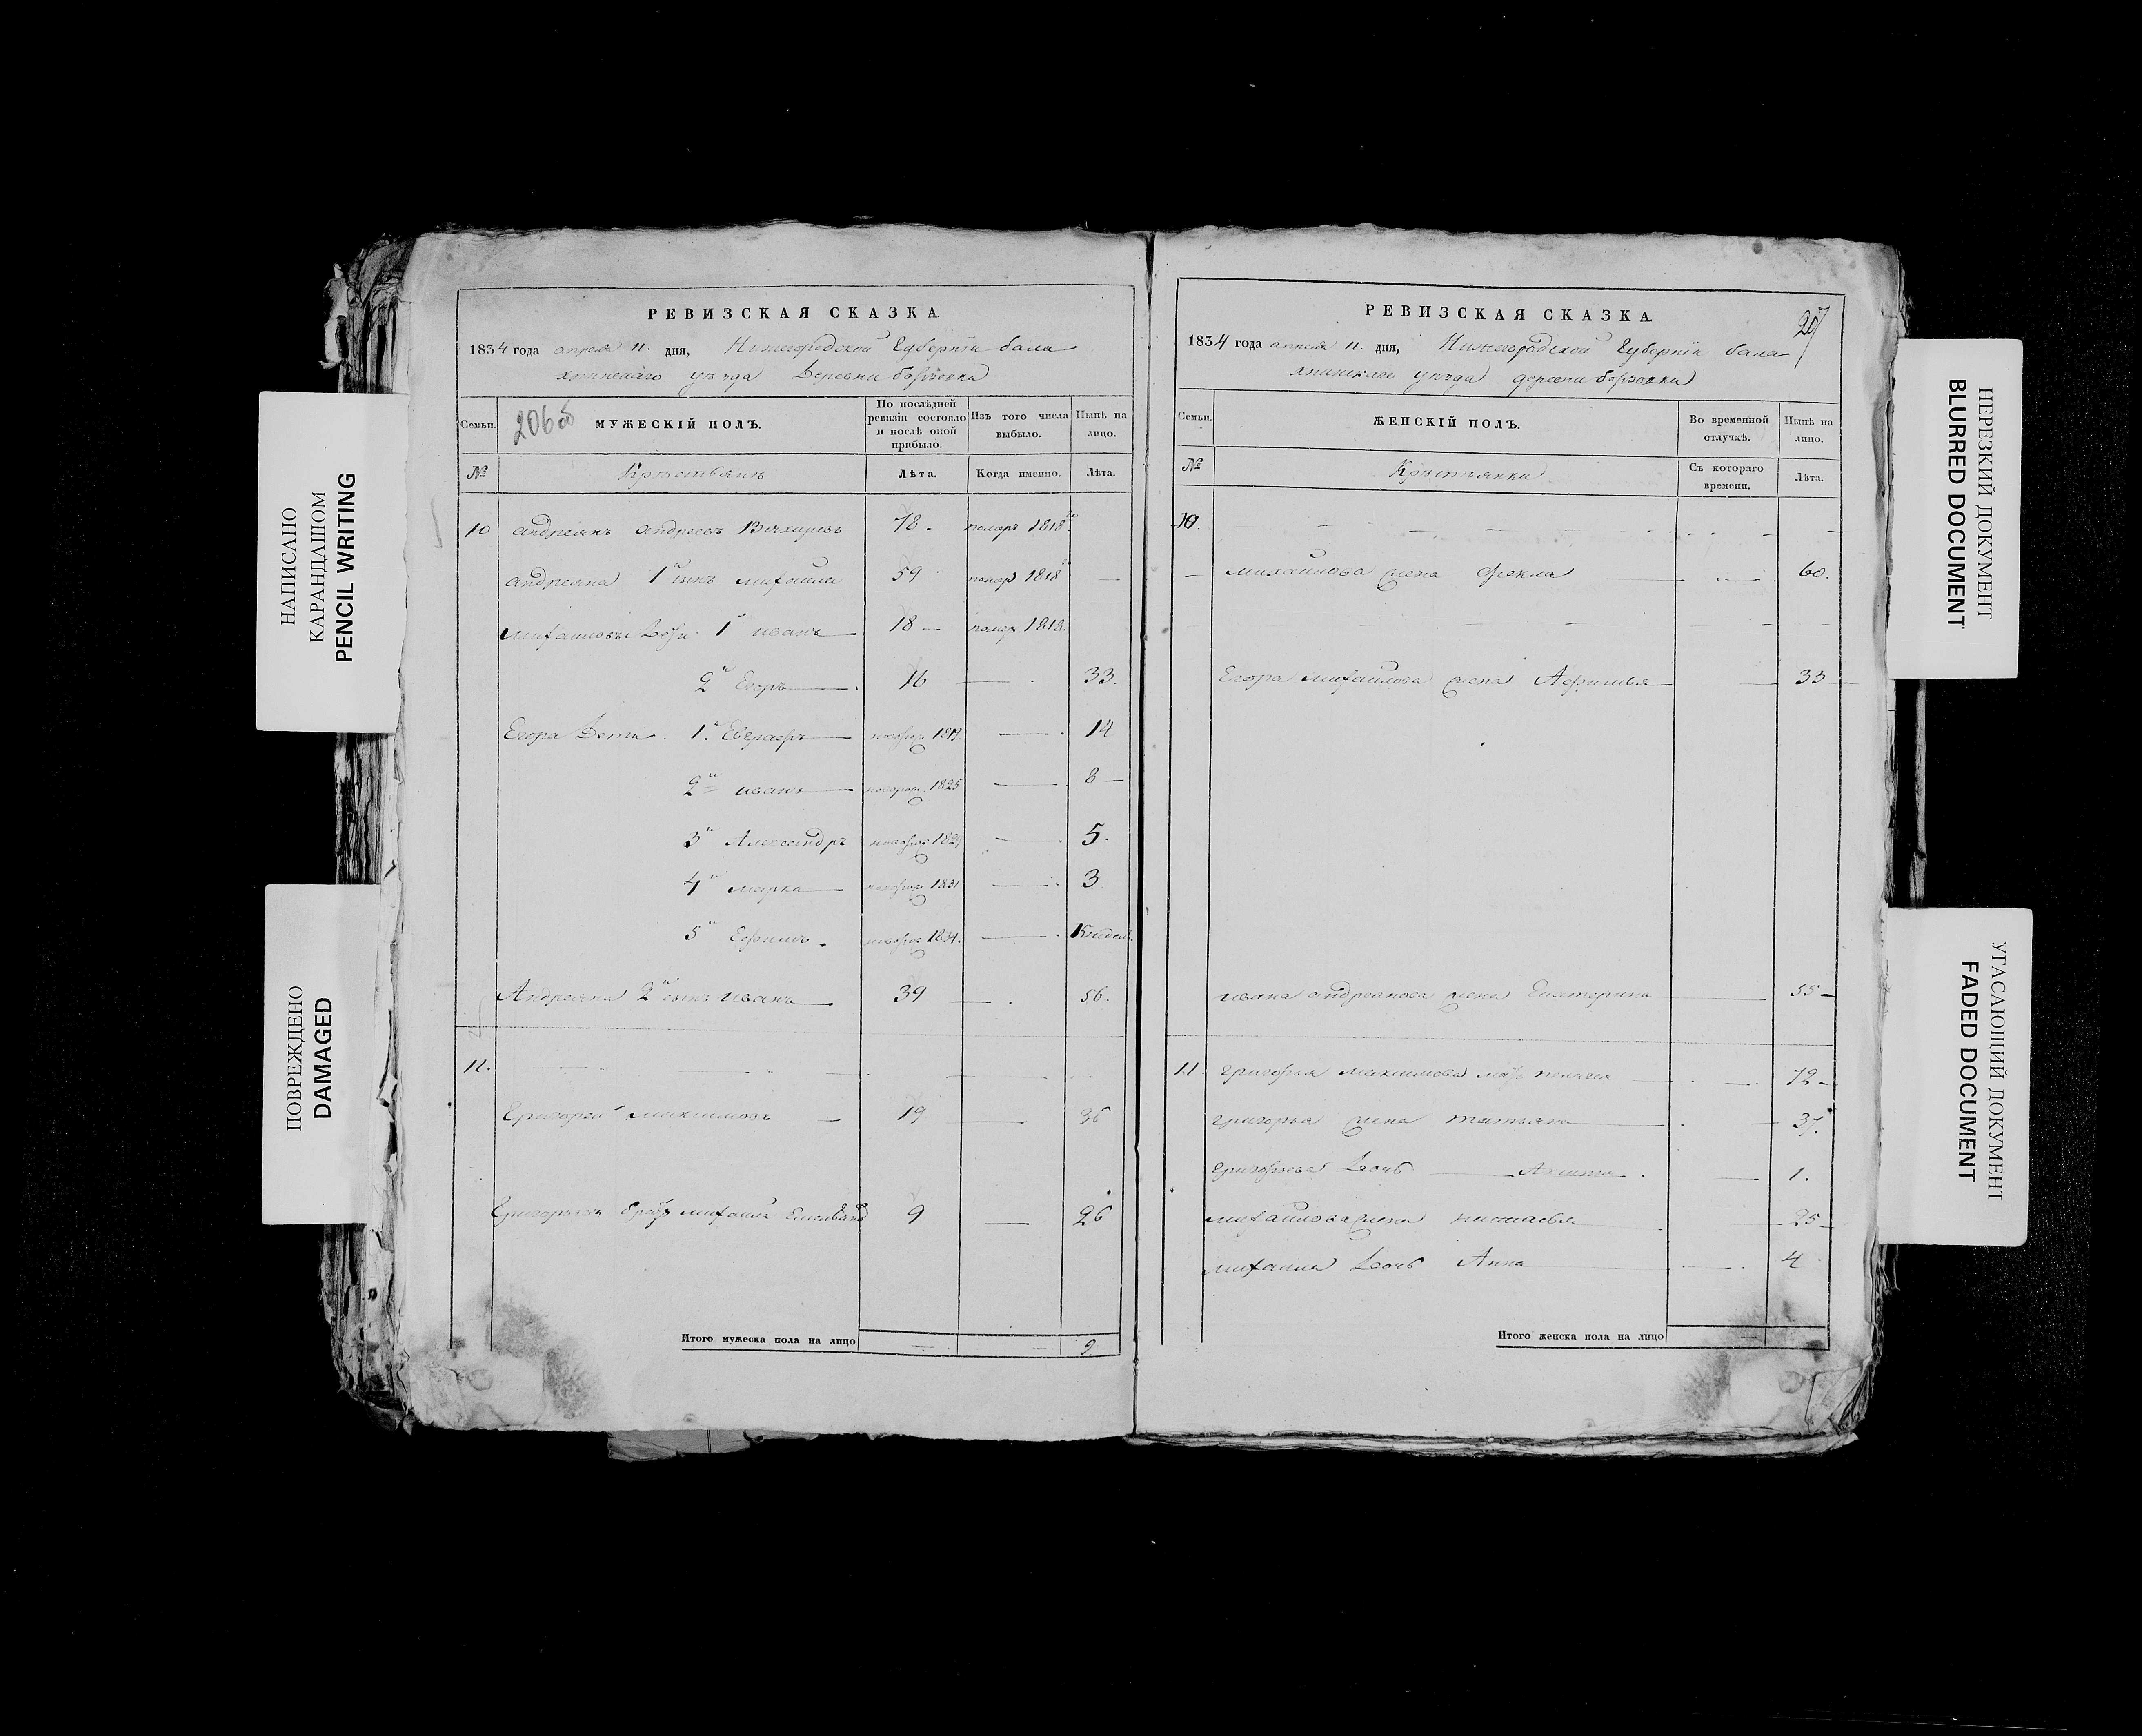 НАПИСАНО
КАРАНДАШОМ
PENCIL WRITING
ПОВРЕЖДЕНО
DAMAGED
РЕВИЗСКАЯ СКАЗКА.
1834 года апреля 11. дня, Нижегородской Губернии бала
хнинскаго уезда Деревни
Семьи. 206об МУЖЕСКІЙ ПОЛЪ. По послѣдней ревизіи состояло и послѣ оной прибыло. Изъ того числа выбыло. Нынѣ на лицо.
№ Лѣта. Когда именно. Лѣта.
10 андреянъ андреевъ 78 - померъ 1818
андреяна 1й сынъ михаила 59 помер 1818 —
михаиловы дети 1й иванъ 18 — помер 1818.
2й Егоръ 16 — 33.
Егора Дети. 1й Евграфъ новорож 1819 — 14
2й иванъ новорож. 1825 — 8 —
3й Александръ новорож 1829 — 5.
4й марка новорож 1831 — 3
5й Ефимъ. новорож 1834. —
Андреяна 2й сынъ иванъ 39 — 56.
11. — — —
Григорей максимовъ — 19 — 36
Григорьевъ братъ михаила 9 — 26
Итого мужеска пола на лицо — — 9
РЕВИЗСКАЯ СКАЗКА.
207
1834 года апреля 11. дня, Нижегородской Губернии бала
хнинскаго уезда деревни
Семьи. ЖЕНСКІЙ ПОЛЪ. Во временной отлучкѣ. Нынѣ на лицо.
№ Крестьянки Съ котораго времени. Лѣта.
10. — — — —
— михаилова жена Фекла — 60.
— — — —
Егора михаилова жена Афимья — 33
ивана андреянова жена Екатерина — 55 —
11. григорья максимова мать пелагея — 72 —
григорья жена татьяна — 37.
григорьева дочь — 1.
михаилова жена — 25 —
михаила дочь Анна — 4
Итого женска пола на лицо —
НЕРЕЗКИЙ ДОКУМЕНТ
BLURRED DOCUMENT
УГАСАЮЩИЙ ДОКУМЕНТ
FADED DOCUMENT